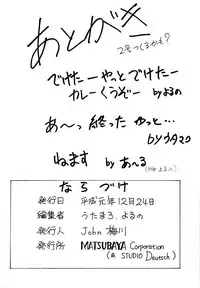 あとがき
2号つくるかも?
でけたーやっとでけたー
カレーくうぞー byよるの
あ〜っ 終った やっと…
byウタマロ
ねます by あ〜る
ならづけ
発行日 平成元年12月24日
編集者 うたまろ、よるの
発行人 John 梅川
発行所 MATSUBAYA Corporation
(A STUDIO Deutsch)